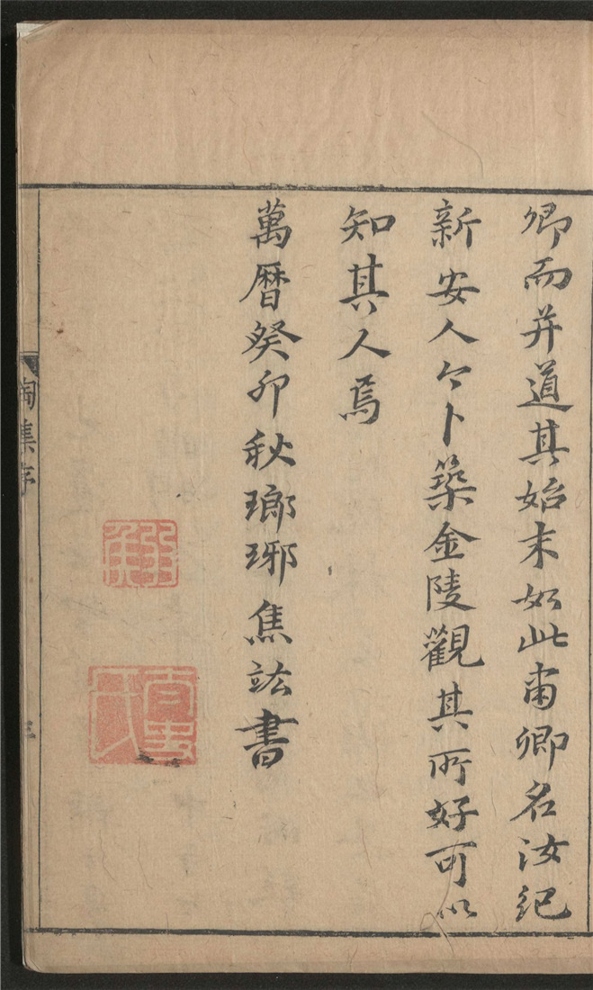 卿而并道其始末如此甫卿名汝紀
新安人今卜築金陵觀其所好可以
知其人焉
萬曆癸卯秋瑯琊焦竑書
陶集序